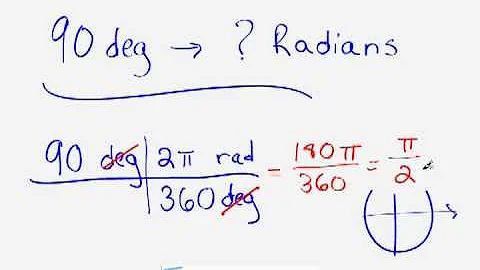 90 deg → ? Radians
90 deg | 2π rad / 360 deg = 180π / 360 = π / 2